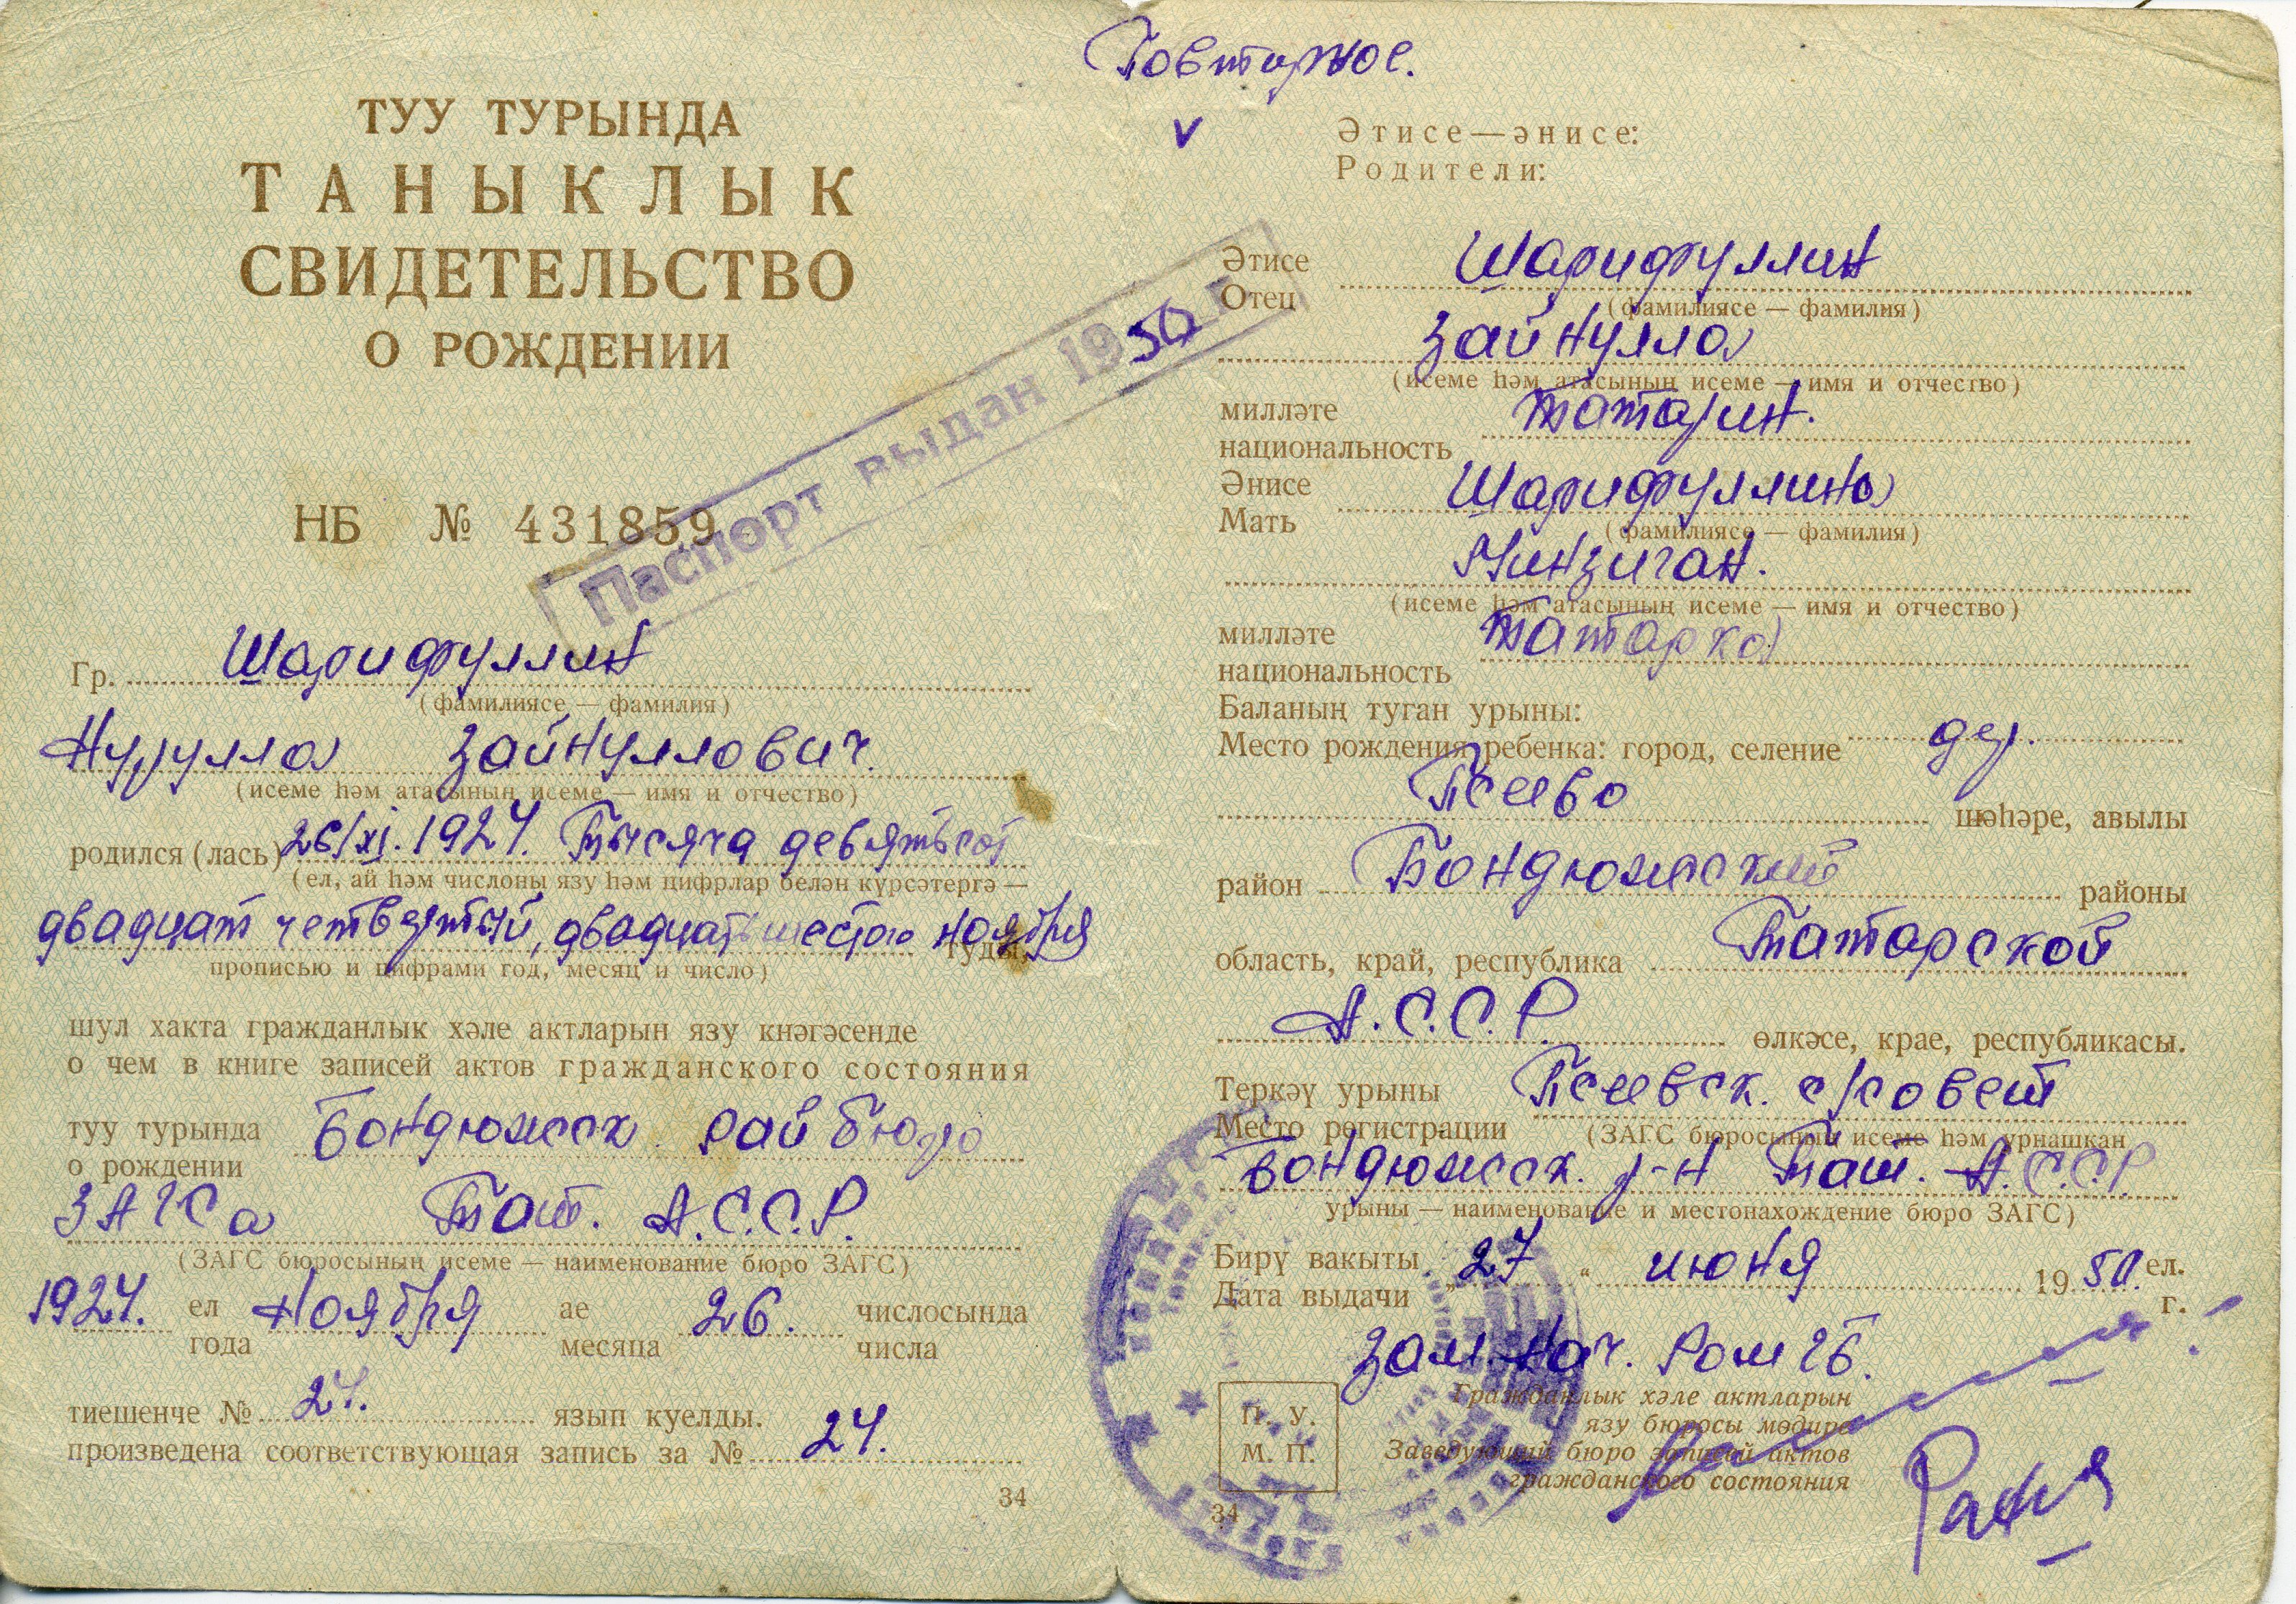 ТУУ ТУРЫНДА
ТАНЫКЛЫК
СВИДЕТЕЛЬСТВО
О РОЖДЕНИИ
НБ № 431859
Паспорт выдан 1950 г.
Гр. Шарифуллин
(фамилиясе — фамилия)
Нурулла Зайнуллович.
(исеме һәм атасының исеме — имя и отчество)
родился (лась) 26/XI. 1924. Тысяча девятьсот
(ел, ай һәм числоны язу һәм цифрлар белән күрсәтергә —
двадцат четвертый, двадцать шестого ноября туды,
прописью и цифрами год, месяц и число)
шул хакта гражданлык хәле актларын язу кнәгәсенде
о чем в книге записей актов гражданского состояния
туу турында
о рождении Бондюжск. рай бюро
ЗАГСа Тат. А.С.С.Р.
(ЗАГС бюросының исеме — наименование бюро ЗАГС)
1924. ел ноября ае 26. числосында
года месяца числа
тиешенче № 24. язып куелды.
произведена соответствующая запись за № 24.
34
Повторное.
v
Әтисе—әнисе:
Родители:
Әтисе
Отец Шарифуллин
(фамилиясе — фамилия)
Зайнулла
(исеме һәм атасының исеме — имя и отчество)
милләте
национальность татарин.
Әнисе
Мать Шарифуллина
(фамилиясе — фамилия)
Минзиган.
(исеме һәм атасының исеме — имя и отчество)
милләте
национальность татарка
Баланың туган урыны:
Место рождения ребенка: город, селение дер.
Псеево шәһәре, авылы
район Бондюжский районы
область, край, республика Татарской
А.С.С.Р. өлкәсе, крае, республикасы.
Теркәү урыны
Место регистрации Псеевск. с/совет
(ЗАГС бюросының исеме һәм урнашкан
Бондюжск. р-н Тат. А.С.С.Р
урыны — наименование и местонахождение бюро ЗАГС)
Бирү вакыты
Дата выдачи „27“ июня 1950. ел.
г.
Зам. нач.
Гражданлык хәле актларын
язу бюросы мөдире
Заведующий бюро записей актов
гражданского состояния
П. У.
М. П.
34